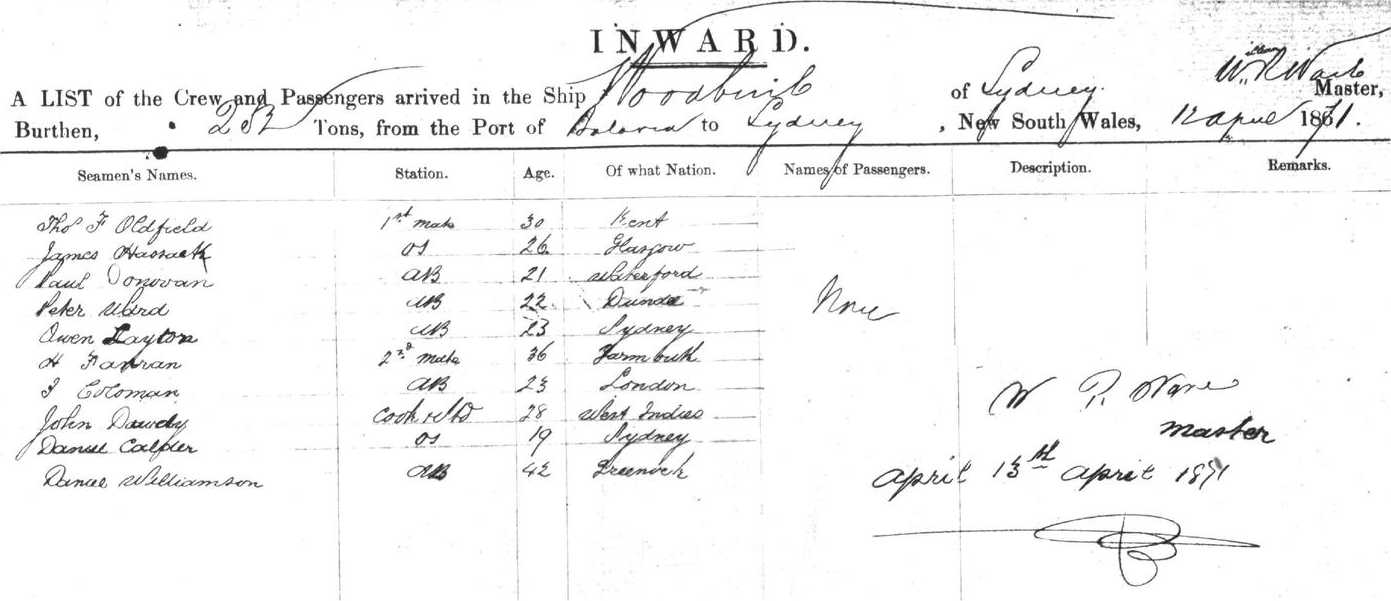 INWARD.
A LIST of the Crew and Passengers arrived in the Ship Woodbine of Sydney. Master,
Burthen, 232 Tons, from the Port of Batavia to Sydney, New South Wales, 12 april 1871.
Seamen's Names. Station. Age. Of what Nation. Names of Passengers. Description. Remarks.
Thos F Oldfield 1st mate 30 Kent
James OS 26 Glasgow
Paul Donovan AB 21 Waterford
Peter Ward AB 22 Dundee
None
Owen Layton AB 23 Sydney
H Farran 2nd mate 36 Yarmouth
Coloman AB 23 London
W
John Dawdy Cook & Std 28 West Indies
master
Daniel OS 19 Sydney
Daniel Williamson AB 42 Greenock
april 13th april 1871